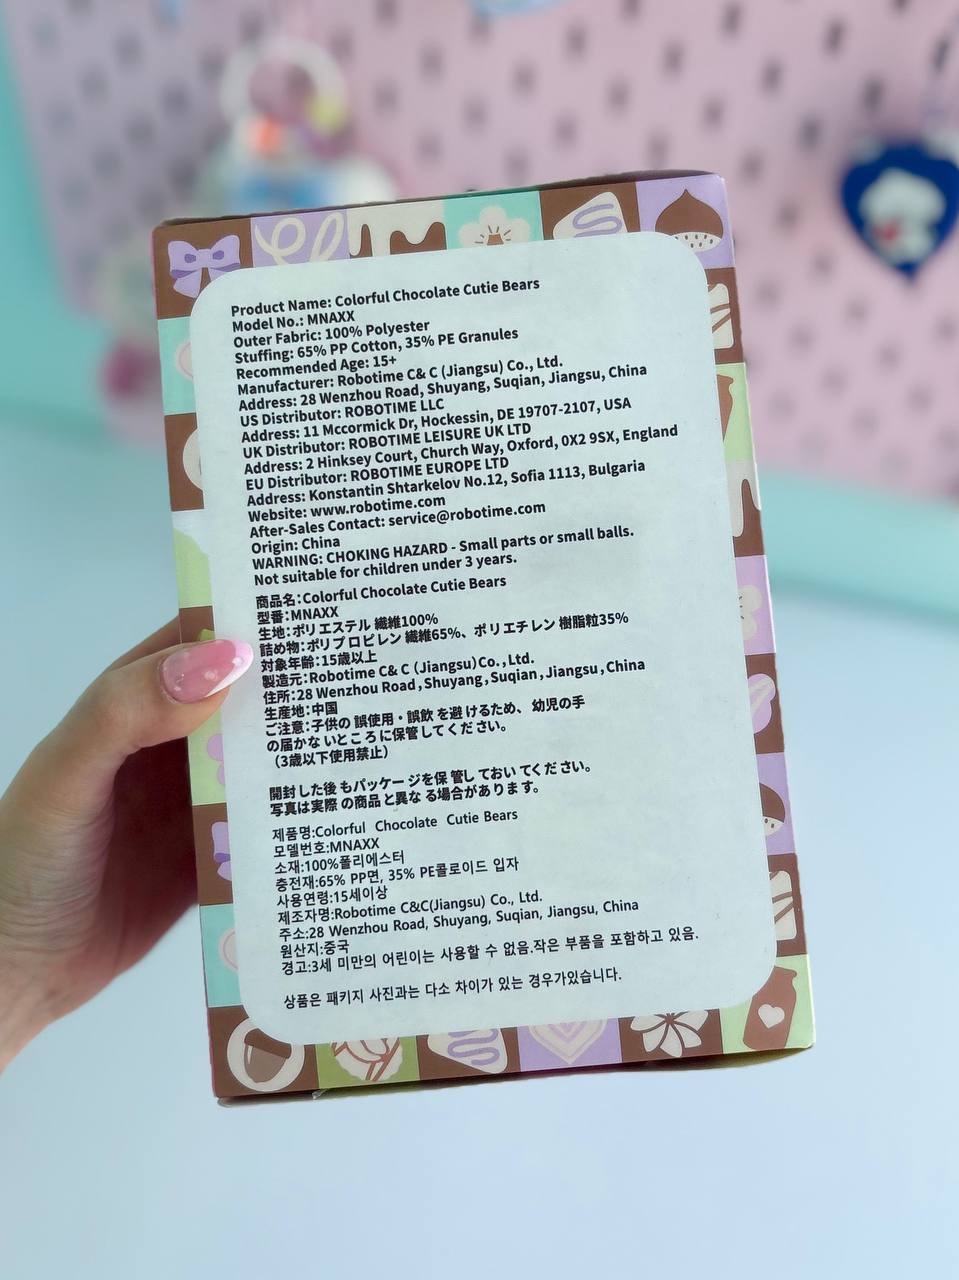 Product Name: Colorful Chocolate Cutie Bears
Model No.: MNAXX
Outer Fabric: 100% Polyester
Stuffing: 65% PP Cotton, 35% PE Granules
Recommended Age: 15+
Manufacturer: Robotime C& C (Jiangsu) Co., Ltd.
Address: 28 Wenzhou Road, Shuyang, Suqian, Jiangsu, China
US Distributor: ROBOTIME LLC
Address: 11 Mccormick Dr, Hockessin, DE 19707-2107, USA
UK Distributor: ROBOTIME LEISURE UK LTD
Address: 2 Hinksey Court, Church Way, Oxford, OX2 9SX, England
EU Distributor: ROBOTIME EUROPE LTD
Address: Konstantin Shtarkelov No.12, Sofia 1113, Bulgaria
Website: www.robotime.com
After-Sales Contact: service@robotime.com
Origin: China
WARNING: CHOKING HAZARD - Small parts or small balls.
Not suitable for children under 3 years.
商品名：Colorful Chocolate Cutie Bears
型番：MNAXX
生地：ポリエステル 繊維100%
詰め物：ポリプロピレン 繊維65%、ポリエチレン 樹脂粒35%
対象年齢：15歳以上
製造元：Robotime C& C (Jiangsu) Co., Ltd.
住所：28 Wenzhou Road, Shuyang, Suqian, Jiangsu, China
生産地：中国
ご注意：子供の 誤使用・誤飲 を避 けるため、 幼児の手
の届かな いところ に保管してください。
（3歳以下使用禁止）
開封した後 もパッケージを保 管し ておい てください。
写真は実際 の商品 と異な る場合があります。
제품명:Colorful Chocolate Cutie Bears
모델번호:MNAXX
소재:100%폴리에스터
충전재:65% PP면, 35% PE콜로이드 입자
사용연령:15세이상
제조자명:Robotime C&C(Jiangsu) Co., Ltd.
주소:28 Wenzhou Road, Shuyang, Suqian, Jiangsu, China
원산지:중국
경고:3세 미만의 어린이는 사용할 수 없음.작은 부품을 포함하고 있음.
상품은 패키지 사진과는 다소 차이가 있는 경우가있습니다.